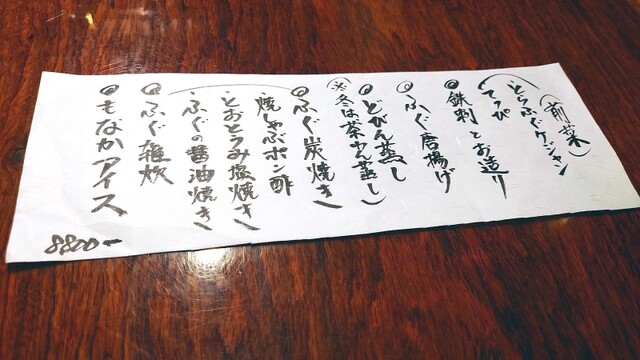 (前菜)
とらふぐケジャン
てっぴ
◎鉄刺とお造り
◎ふぐ唐揚げ
◎どびん蒸し
(※冬は茶わん蒸し)
◎ふぐ炭焼き
焼しゃぶポン酢
とおとうみ塩焼き
ふぐの醤油焼き
◎ふぐ雑炊
◎もなかアイス
8,800ー